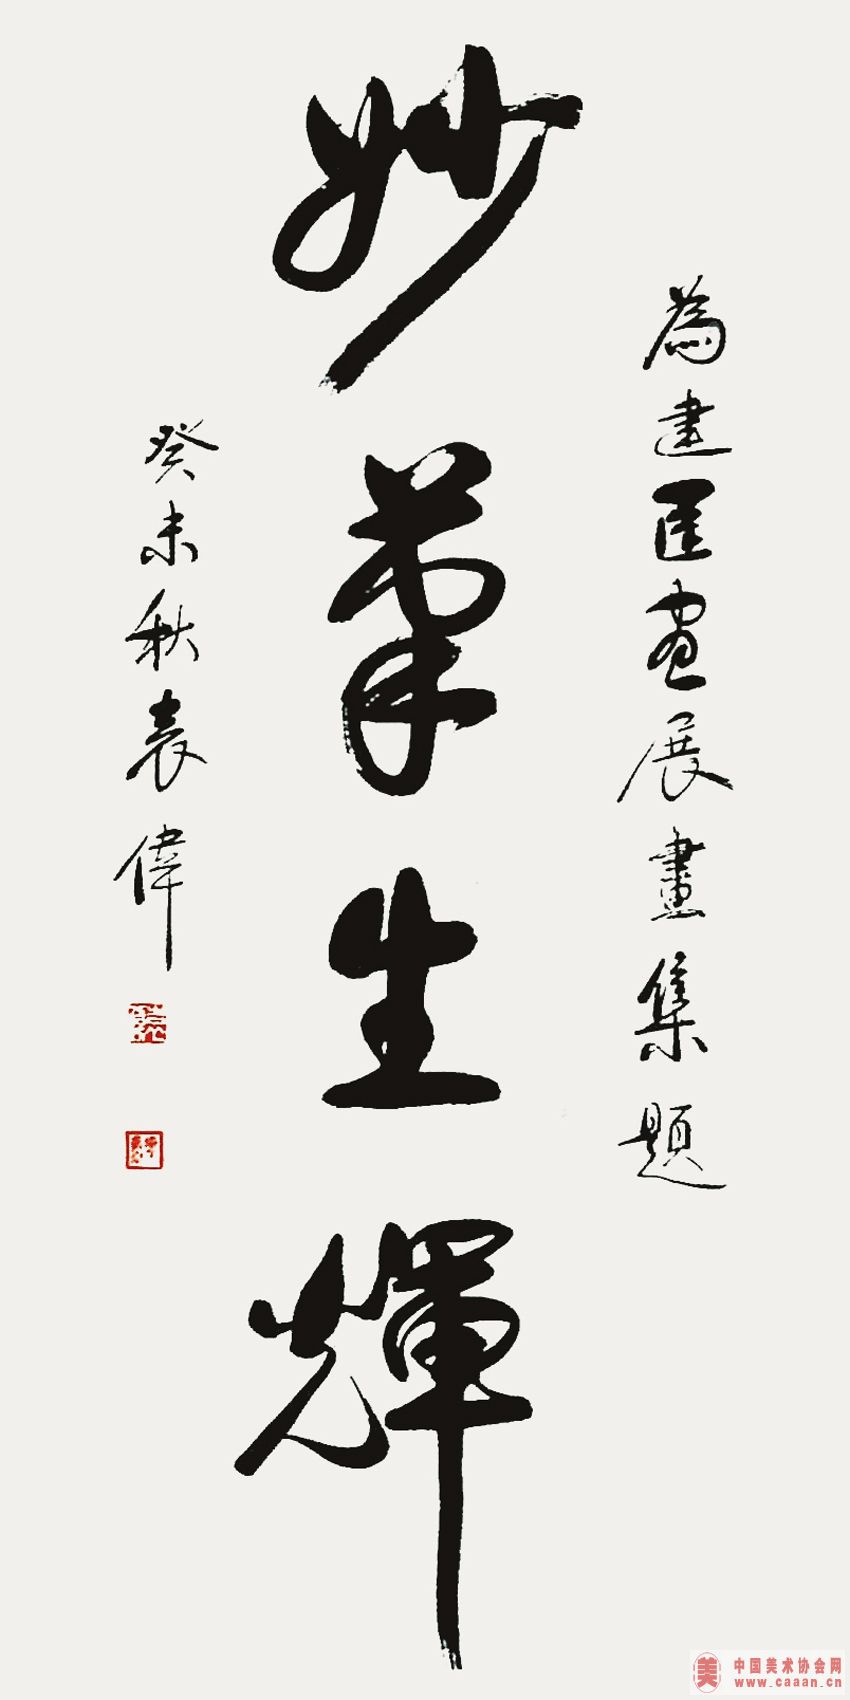 為建匡畫展畫集題
妙筆生輝
癸未秋袁偉
美
中国美术协会网
www.caaan.cn